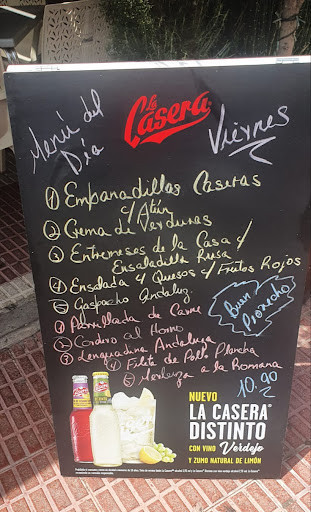 La
Casera
Menú del
Día
Viernes
1 Empanadillas Caseras
y Atún
2 Crema de Verduras
3 Entremeses de la Casa y
Ensaladilla Rusa
4 Ensalada 4 Quesos y Frutos Rojos
5 Gaspacho Andaluz
1 Parrillada de Carne
2 Cordero al Horno
3 Lenguadina Andaluza
4 Filete de Pollo Plancha
5 Merluza a la Romana
Buen
Provecho
10.90
NUEVO
LA CASERA
DISTINTO
CON VINO Verdejo
Y ZUMO NATURAL DE LIMÓN